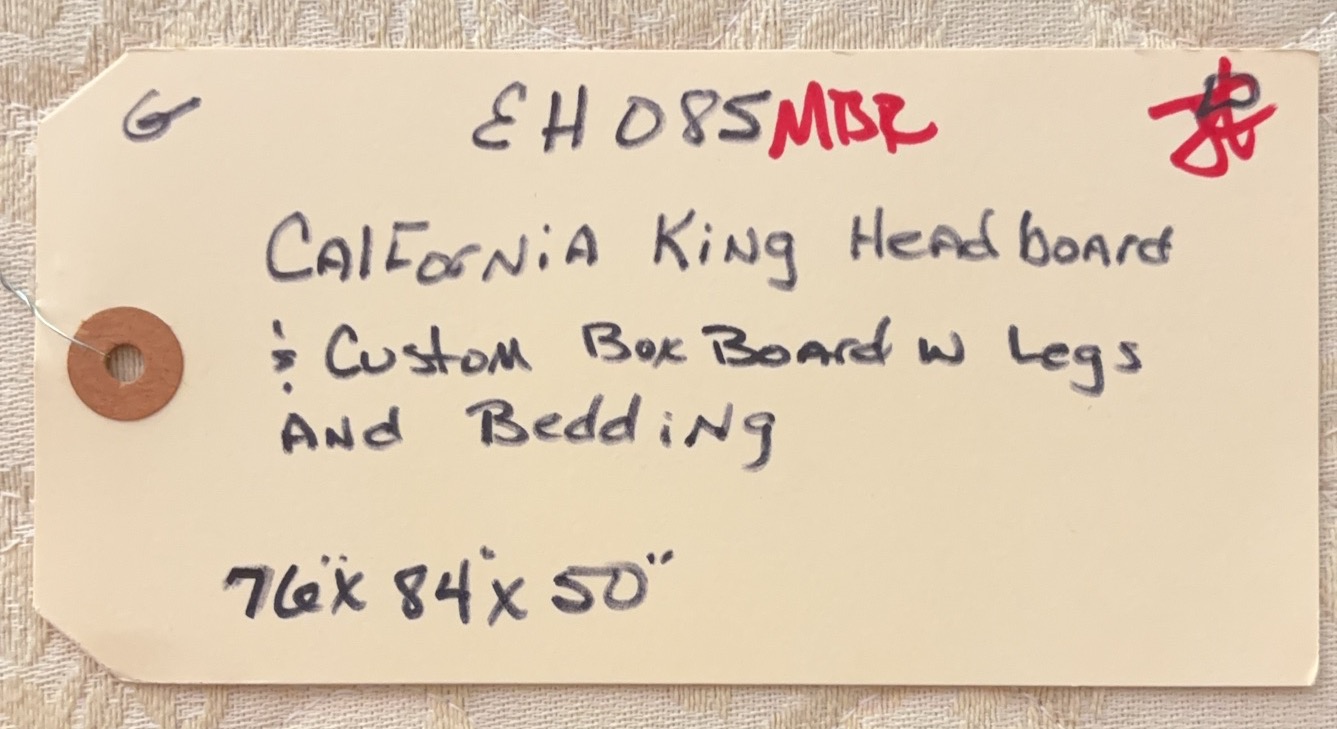 G EH085 MBR
CAlForNiA KiNg HeadboArd
& Custom Box BoArd W Legs
ANd BeddiNg
76" x 84" x 50"